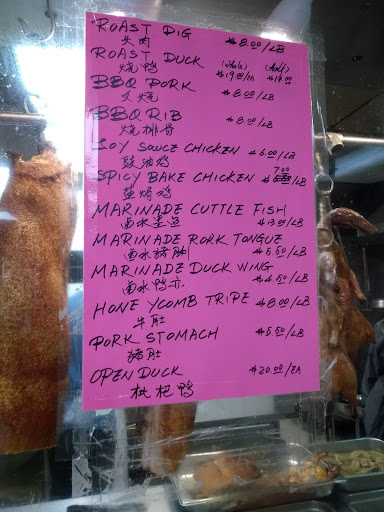 ROAST PIG $8.00/LB
火肉
ROAST DUCK (whole) (half)
烧鸭 $19.00/EA $10.00
BBQ PORK $8.00/LB
叉烧
BBQ RIB $8.00/LB
烧排骨
SOY SAUCE CHICKEN $6.00/LB
豉油鸡 7.00
SPICY BAKE CHICKEN /LB
盐焗鸡
MARINADE CUTTLE FISH
卤水墨 $13.00/LB
MARINADE PORK TONGUE
卤水猪脷 $5.50/LB
MARINADE DUCK WING
卤水鸭 $4.50/LB
HONEYCOMB TRIPE $8.00/LB
牛肚
PORK STOMACH $5.50/LB
猪肚
OPEN DUCK $20.00/EA
枇杷鸭